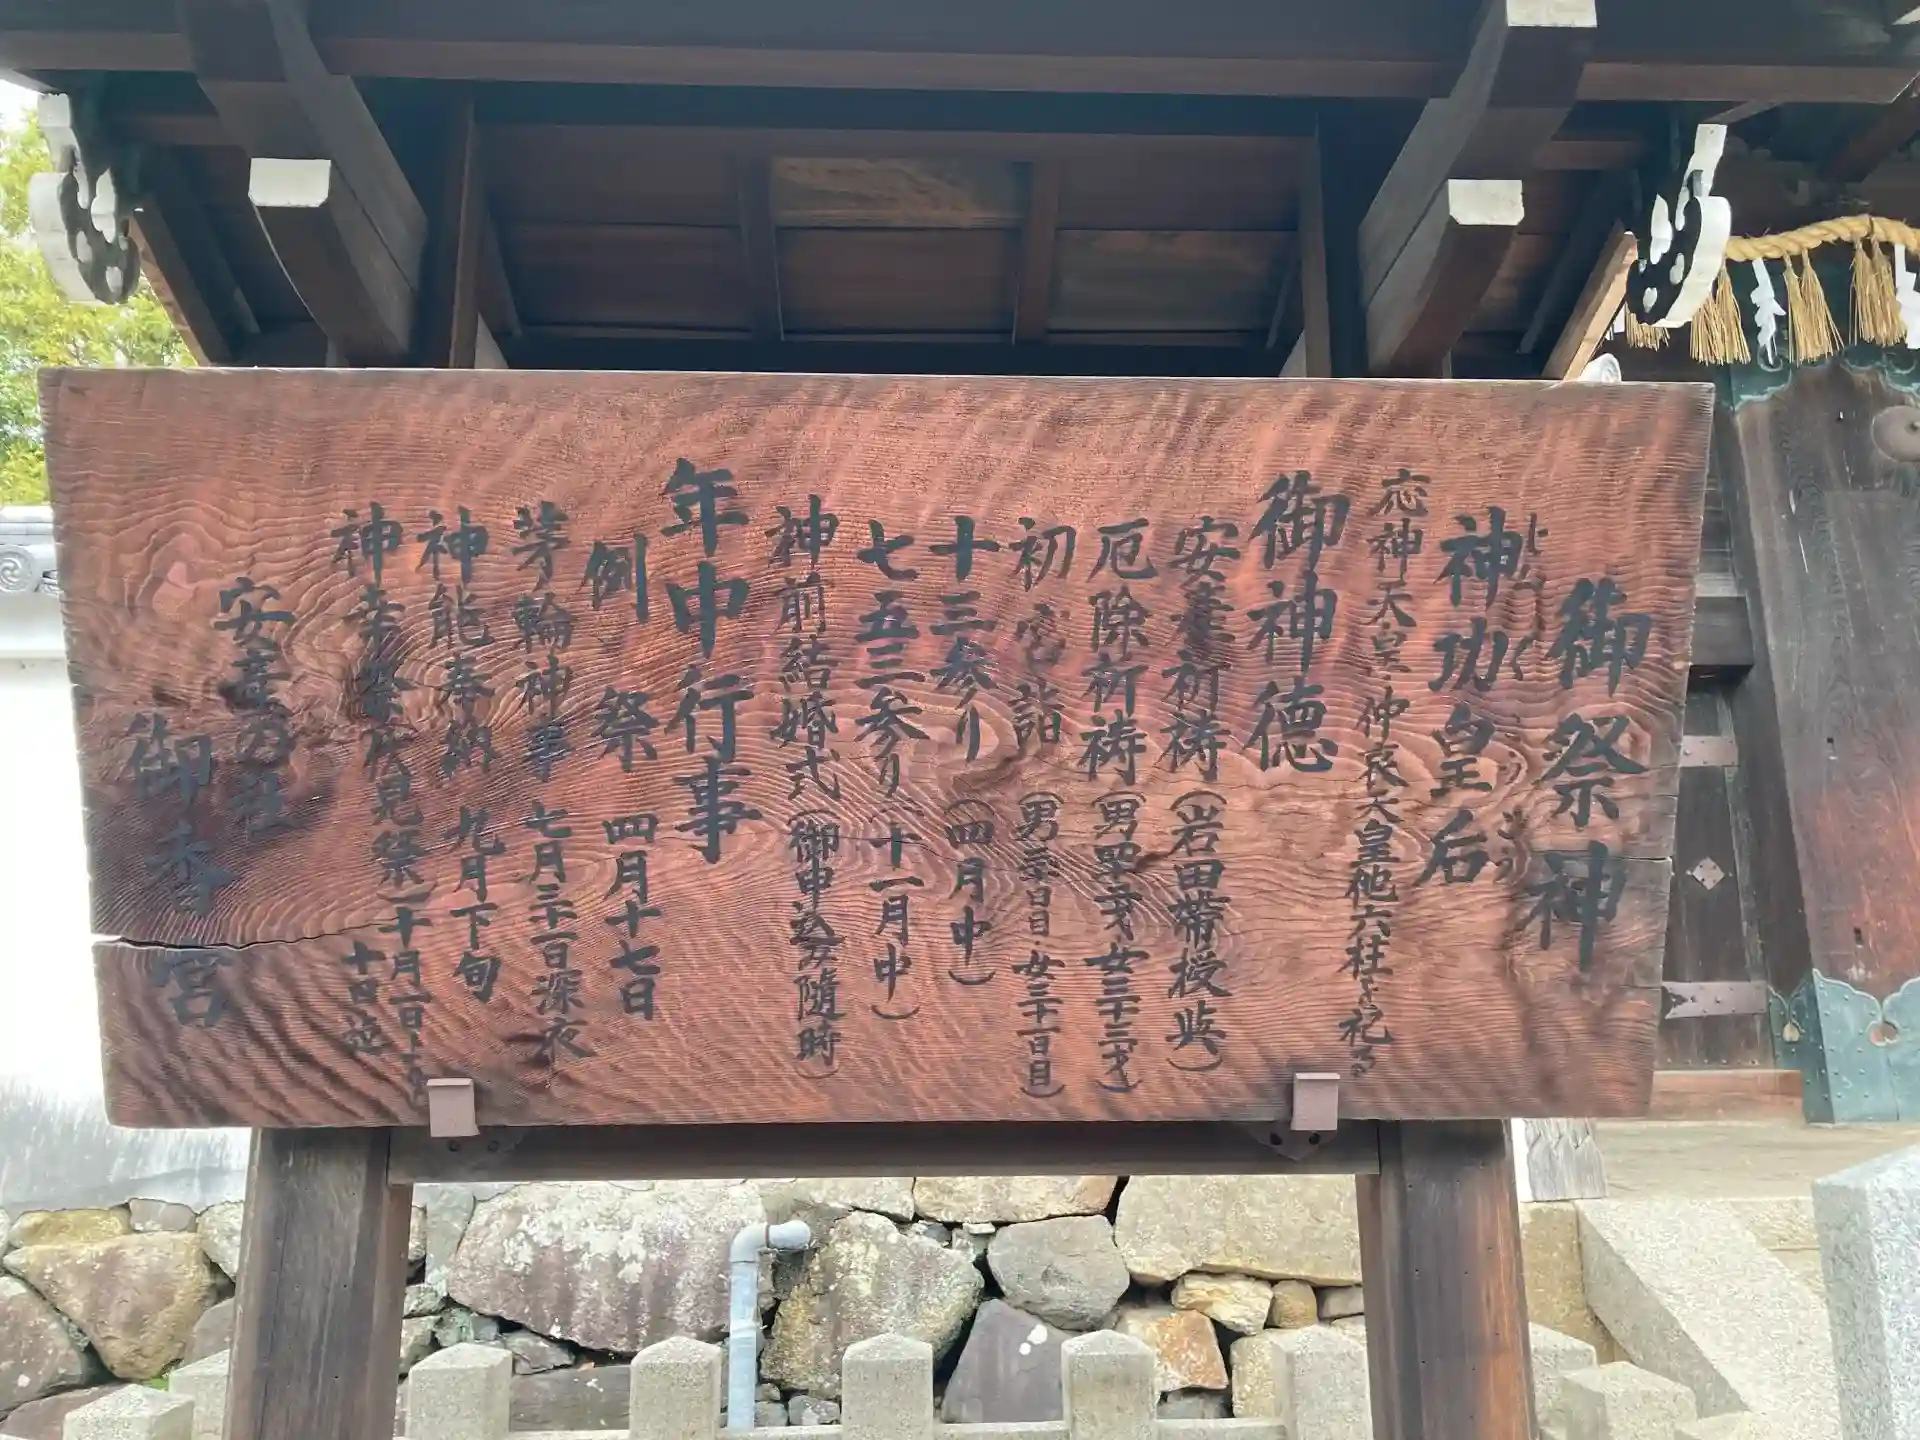 御祭神
神功皇后
じんぐうこうごう
応神天皇・仲哀天皇他六柱を祀る
御神徳
安産祈祷（岩田帯授与）
厄除祈祷（男四十二才女三十三才）
初宮詣（男三十日目・女三十一日目）
十三参り（四月中）
七五三参り（十一月中）
神前結婚式（御申込み随時）
年中行事
例祭 四月十七日
茅輪神事 七月三十一日深夜
神能奉納 九月下旬
神幸祭（伏見祭）十月一日より
十日迄
安産の社
御香宮